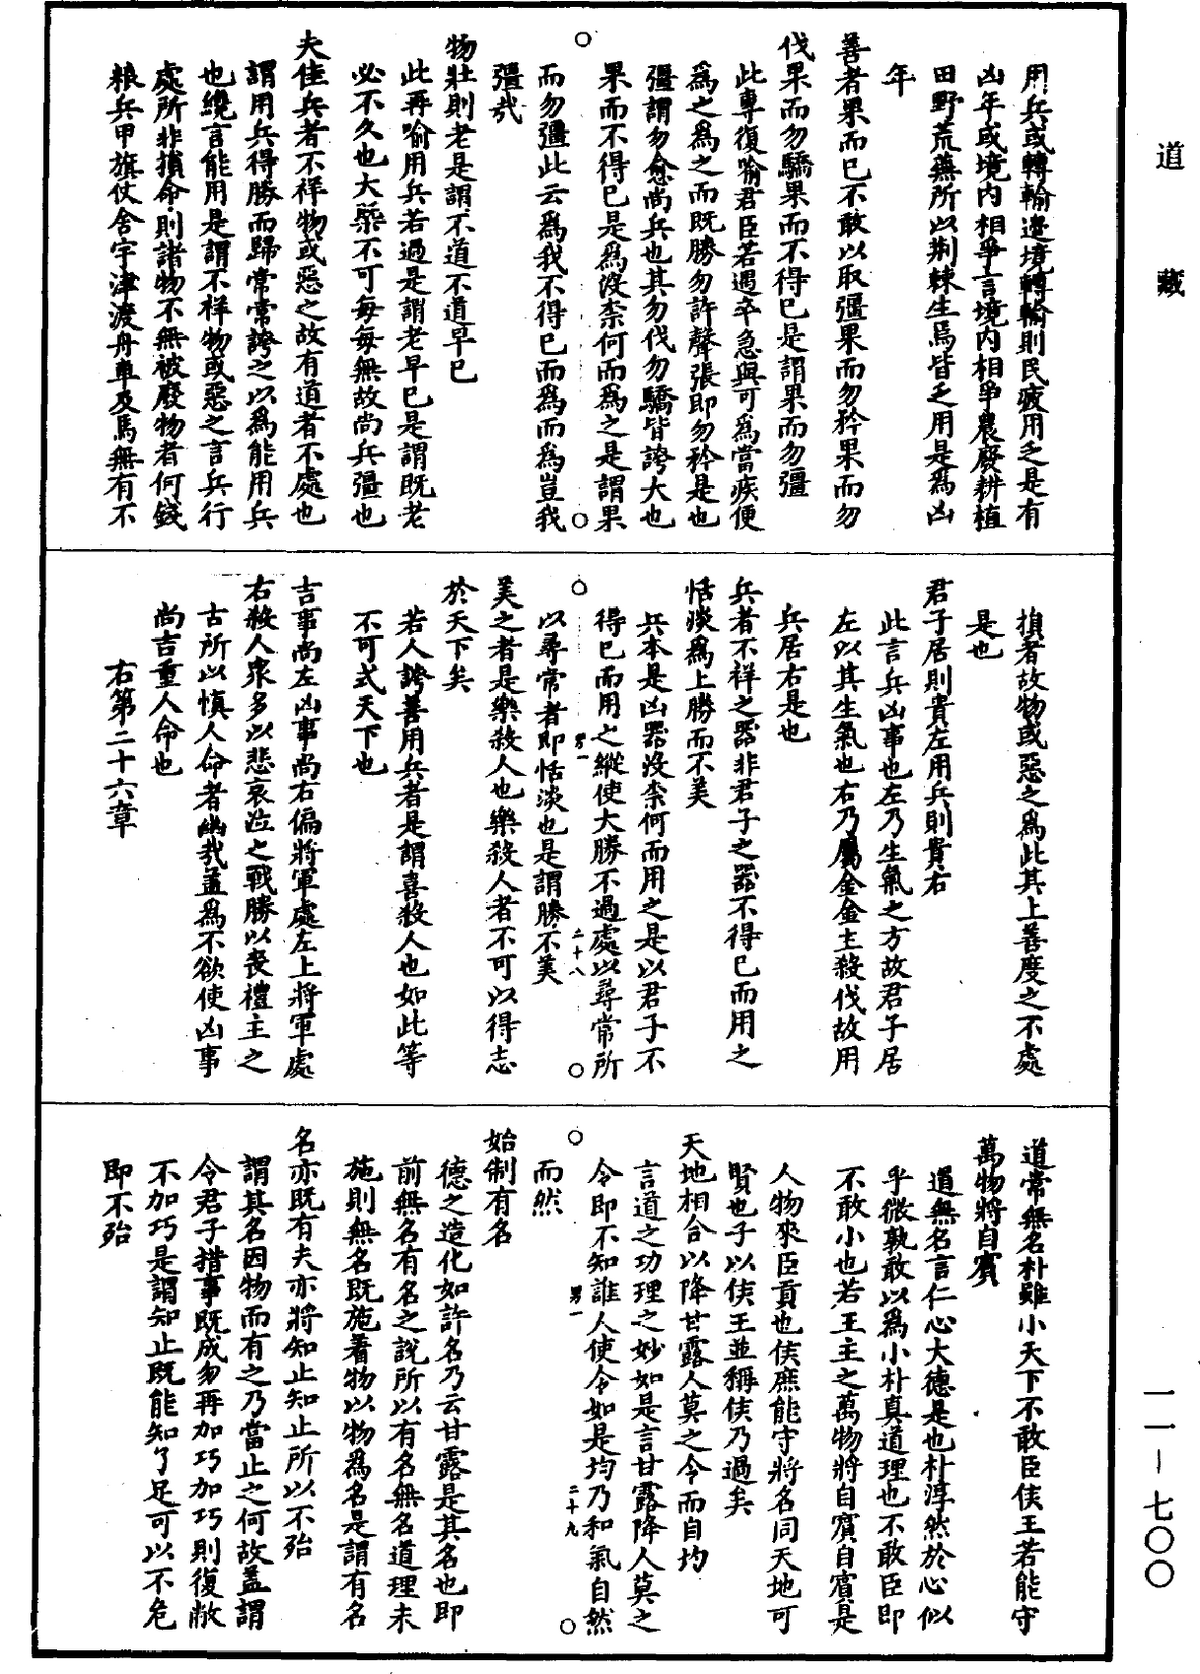 道藏
用兵或轉輸邊境轉輸則民疲用乏是有
凶年或境内相爭言境内相爭農廢耕植
田野荒蕪所以荆棘生焉皆乏用是爲凶
年
善者果而已不敢以取彊果而勿矜果而勿
伐果而勿驕果而不得已是謂果而勿彊
此專復喻君臣若遇卒急與可爲當疾便
爲之爲之而既勝勿許聲張即勿矜是也
彊謂勿愈尚兵也其勿伐勿驕皆誇大也
果而不得已是爲没柰何而爲之是謂果
而勿彊此云爲我不得已而爲而爲豈我
彊哉
物壯則老是謂不道不道早已
此再喻用兵若過是謂老早已是謂既老
必不久也大槩不可每每無故尚兵彊也
夫佳兵者不祥物或惡之故有道者不處也
謂用兵得勝而歸常常誇之以爲能用兵
也纔言能用是謂不祥物或惡之言兵行
處所非損命則諸物不無被廢物者何錢
粮兵甲旗仗舍宇津渡舟車及馬無有不
損者故物或惡之爲此其上善度之不處
是也
君子居則貴左用兵則貴右
此言兵凶事也左乃生氣之方故君子居
左以其生氣也右乃屬金金主殺伐故用
兵居右是也
兵者不祥之器非君子之器不得已而用之
恬淡爲上勝而不美
兵本是凶器没柰何而用之是以君子不
得已而用之縱使大勝不過處以尋常所
男一 二十八
以尋常者即恬淡也是謂勝不美
美之者是樂殺人也樂殺人者不可以得志
於天下矣
若人誇善用兵者是謂喜殺人也如此等
不可式天下也
吉事尚左凶事尚右偏將軍處左上將軍處
右殺人衆多以悲哀泣之戰勝以喪禮主之
古所以慎人命者幽哉盖爲不欲使凶事
尚吉重人命也
右第二十六章
道常無名朴雖小天下不敢臣侯王若能守
萬物將自賓
道無名言仁心大德是也朴淳然於心似
乎微孰敢以爲小朴真道理也不敢臣即
不敢小也若王主之萬物將自賓自賓是
人物來臣貢也侯庶能守將名同天地可
賢也子以侯王並稱侯乃過矣
天地相合以降甘露人莫之令而自均
言道之功理之妙如是言甘露降人莫之
令即不知誰人使令如是均乃和氣自然
男一 二十九
而然
始制有名
德之造化如許名乃云甘露是其名也即
前無名有名之說所以有名無名道理未
施則無名既施著物以物為名是謂有名
名亦既有夫亦將知止知止所以不殆
謂其名因物而有之乃當止之何故盖謂
令君子措事既成勿再加巧加巧則復敝
不加巧是謂知止既能知了足可以不危
即不殆
一一－七〇〇